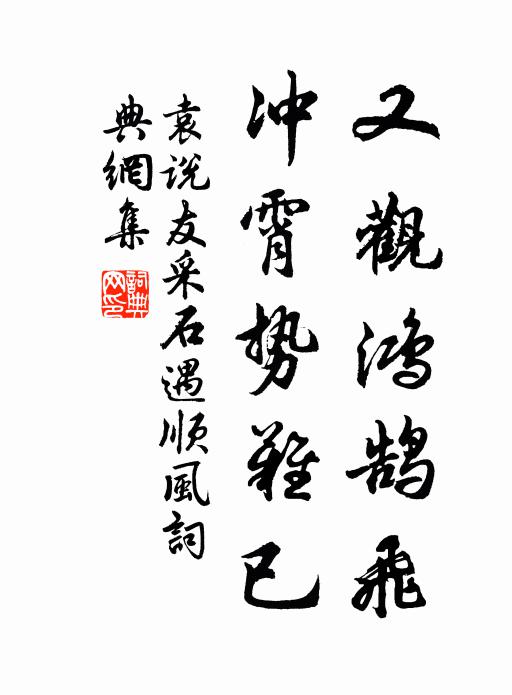 又觀鴻鵠飛
冲霄勢難已
袁説友采石遇順風詞
典網集
詞典網印